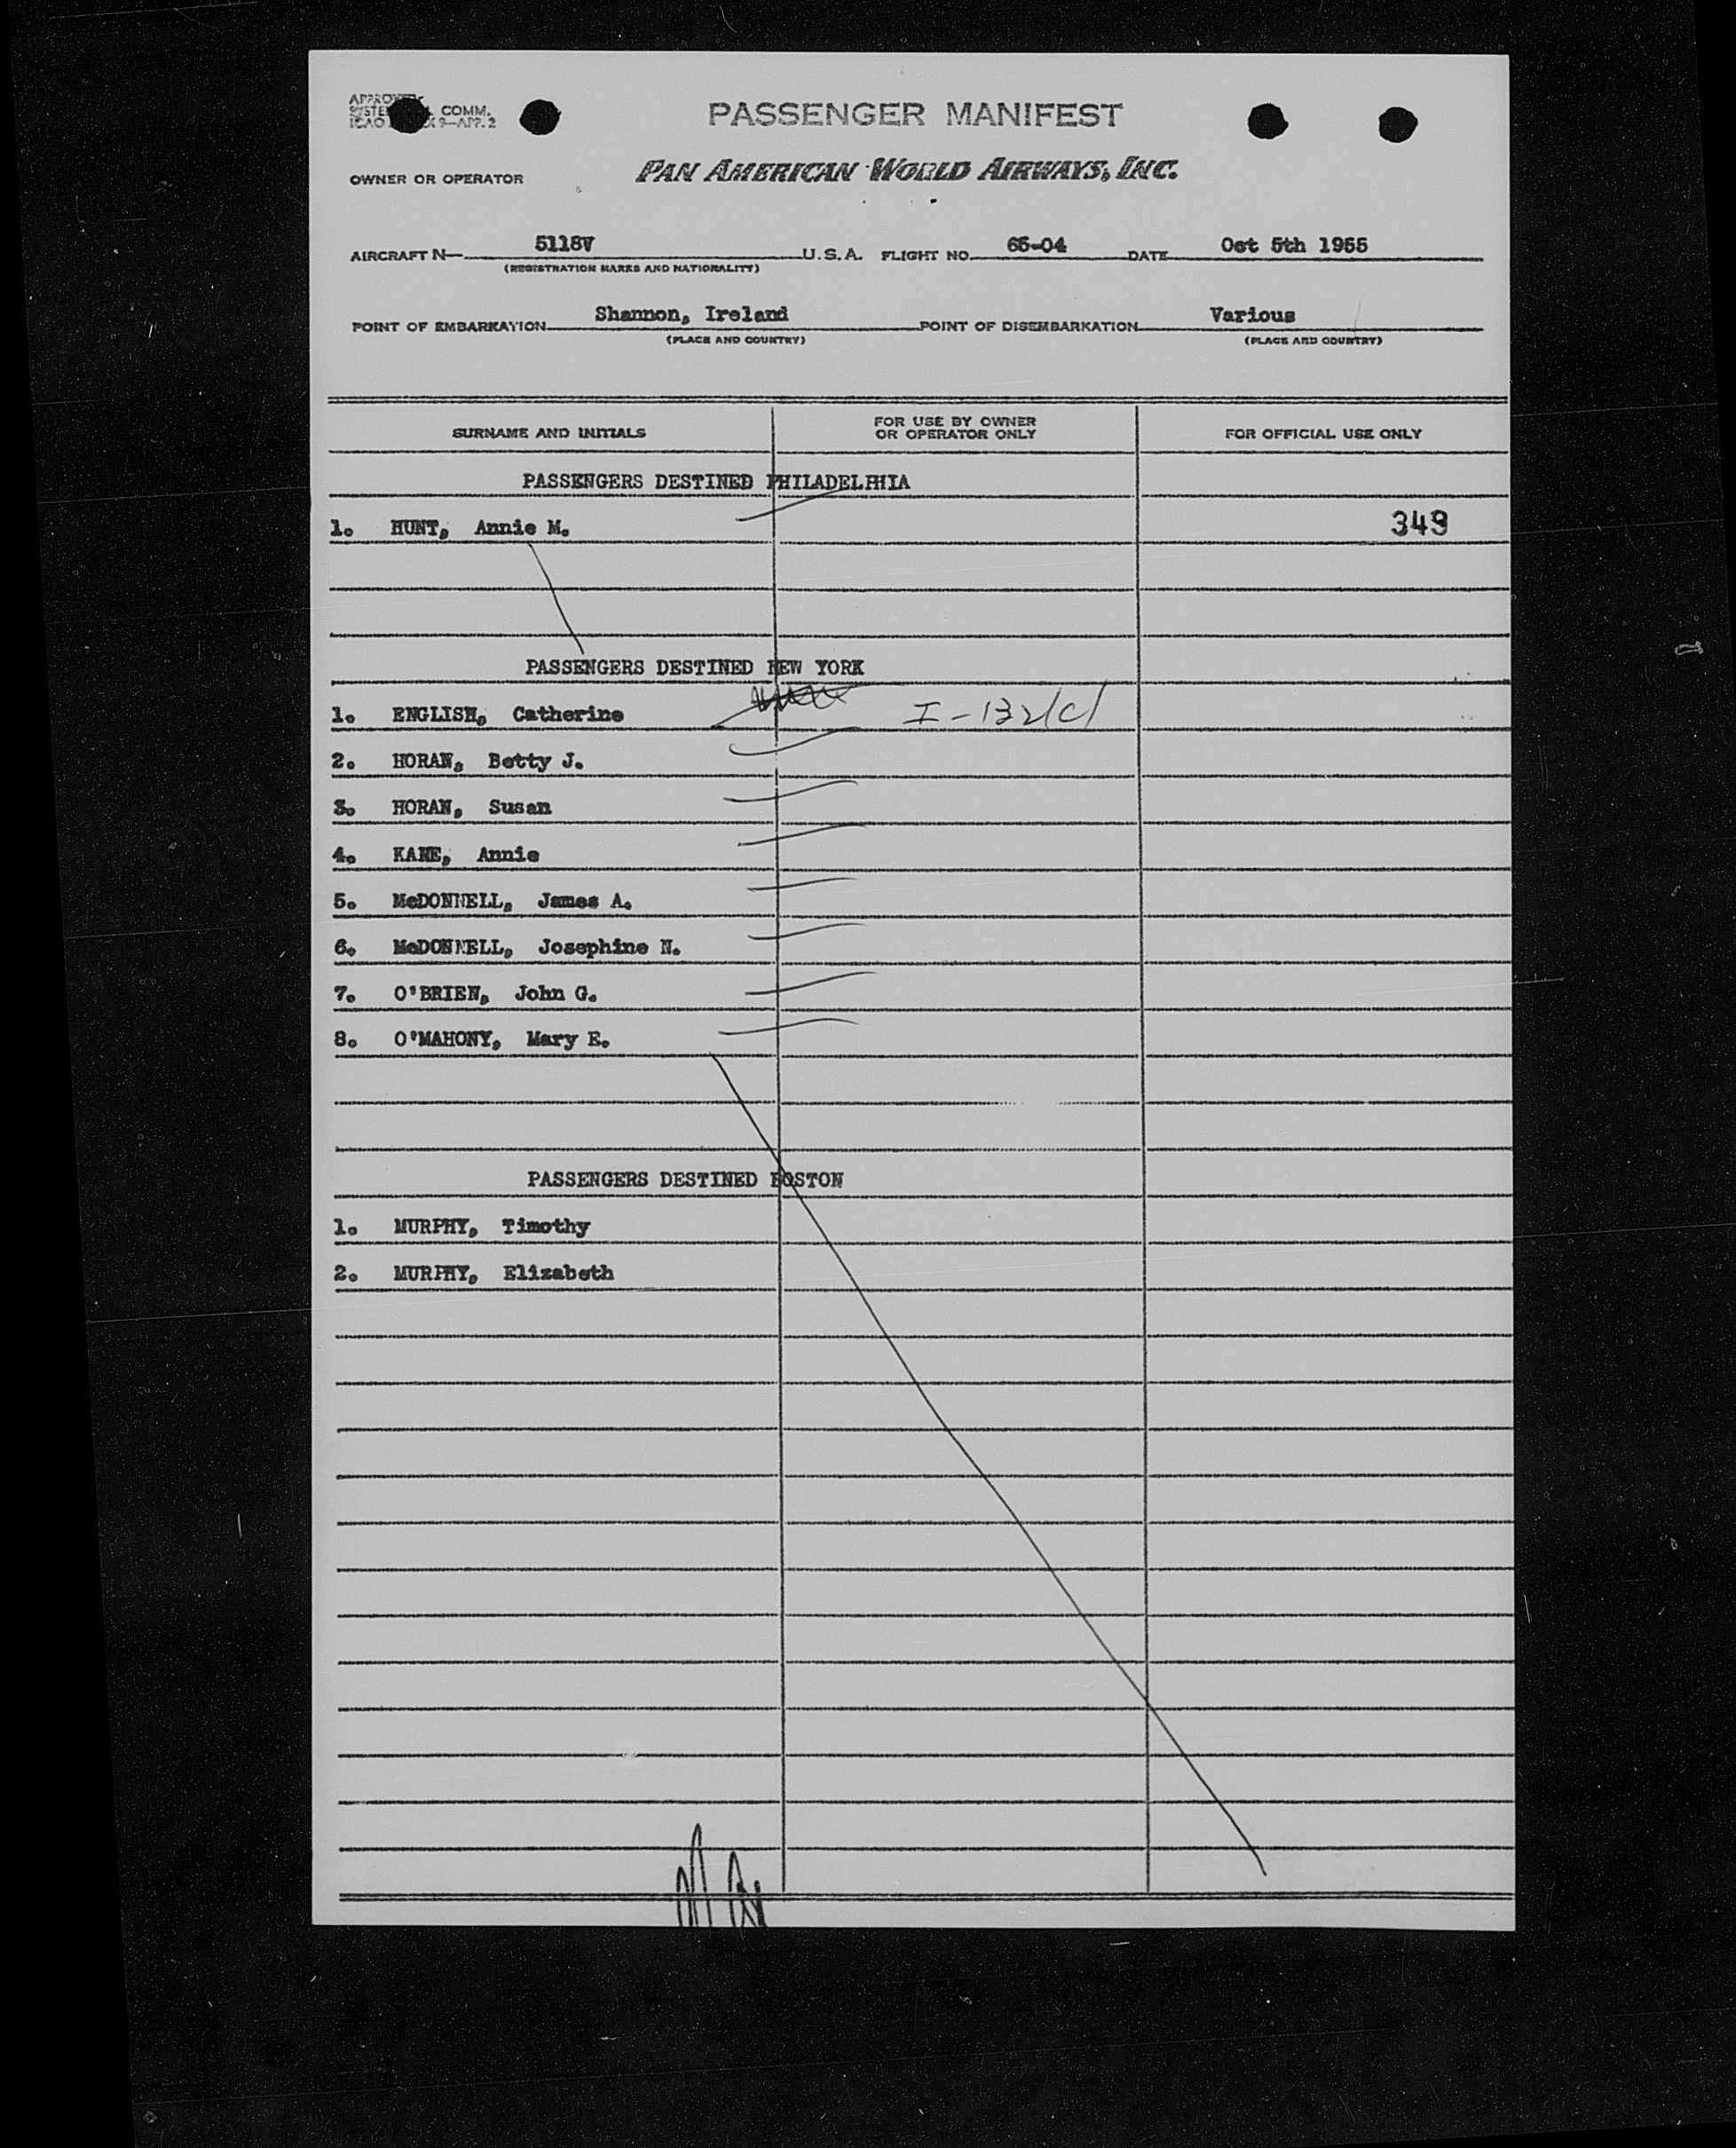 PASSENGER MANIFEST
COMM.
9—APP. 2
OWNER OR OPERATOR PAN AMERICAN WORLD AIRWAYS, INC.
AIRCRAFT N— 5118V U.S.A. FLIGHT NO. 65-04 DATE Oct 5th 1955
(REGISTRATION MARKS AND NATIONALITY)
POINT OF EMBARKATION Shannon, Ireland POINT OF DISEMBARKATION Various
(PLACE AND COUNTRY) (PLACE AND COUNTRY)
SURNAME AND INITIALS
FOR USE BY OWNER
OR OPERATOR ONLY
FOR OFFICIAL USE ONLY
PASSENGERS DESTINED PHILADELPHIA
1. HUNT, Annie M. 349
PASSENGERS DESTINED NEW YORK
1. ENGLISH, Catherine I-132/c/
2. HORAN, Betty J.
3. HORAN, Susan
4. KANE, Annie
5. McDONNELL, James A.
6. McDONNELL, Josephine N.
7. O'BRIEN, John G.
8. O'MAHONY, Mary E.
PASSENGERS DESTINED BOSTON
1. MURPHY, Timothy
2. MURPHY, Elizabeth